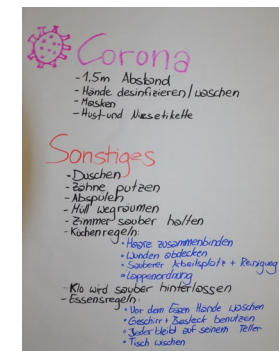 Corona
- 1,5m Abstand
- Hände desinfizieren/waschen
- Masken
- Hust- und Niesetikette
Sonstiges
- Duschen
- Zähne putzen
- Abspülen
- Müll wegräumen
- Zimmer sauber halten
- Küchenregeln:
• Haare zusammenbinden
• Wunden abdecken
• Sauberer Arbeitsplatz + Reinigung
• Lappenordnung
- Klo wird sauber hinterlassen
- Essensregeln:
• Vor dem Essen Hände waschen
• Geschirr + Besteck benutzen
• Jeder bleibt auf seinem Teller
• Tisch wischen